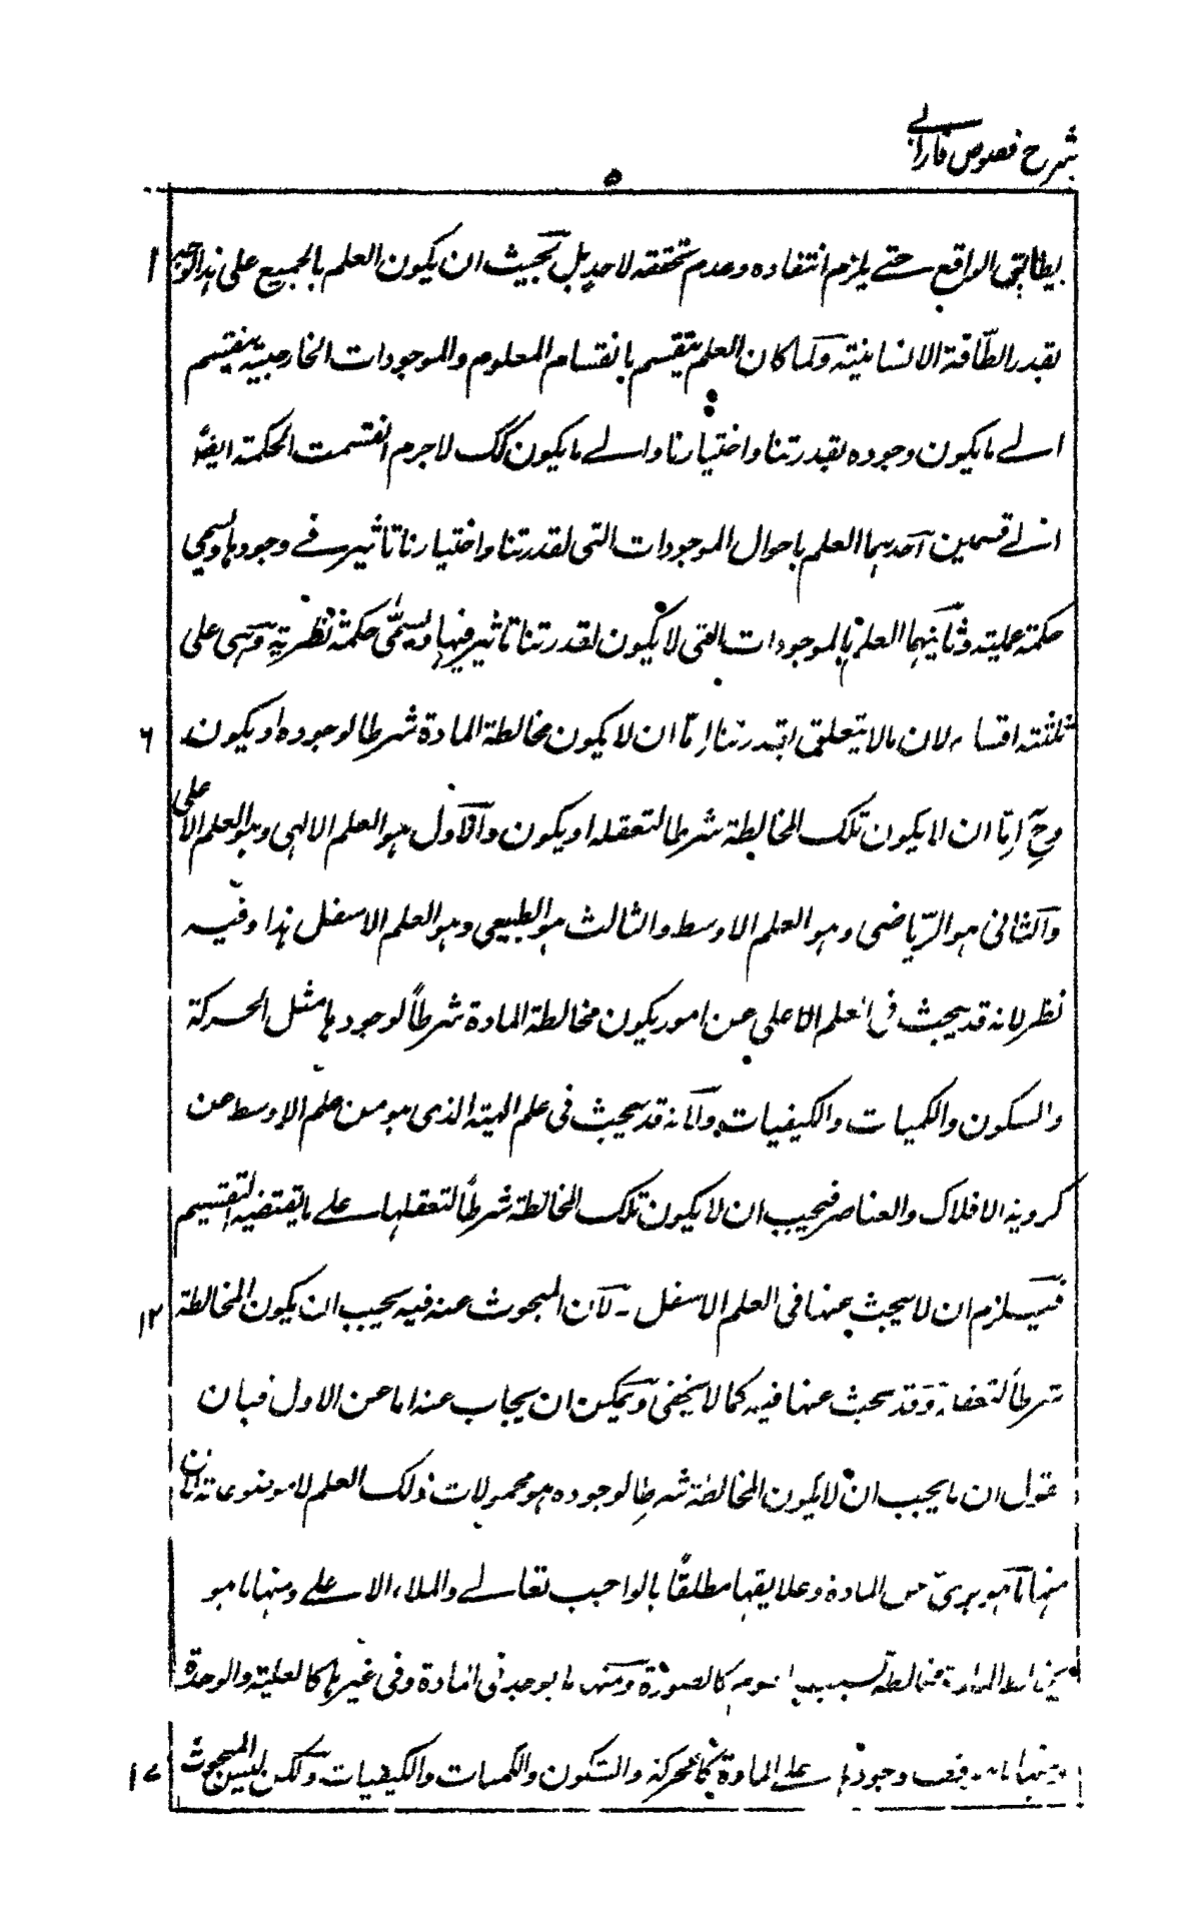 شرح فصوص فارابی
٥
يطابق الواقع حتے يلزم انتفاده وعدم تحققه لاحد بل بحيث ان يكون العلم بالجميع على هذا الوجه ١
بقدر الطاقة الانسانية ولما كان العلم ينقسم بانقسام المعلوم والموجودات الخارجية ينقسم
الے ما يكون وجوده بقدرتنا واختيارنا والے ما يكون كك لاجرم انقسمت الحكمة ايضًا
الے قسمين احدهما العلم باحوال الموجودات التى لقدرتنا واختيارنا تاثير فے وجودها ويسمى
حكمة عملية وثانيهما العلم بالموجودات التى لا يكون لقدرتنا تاثير فيها ويسمّى حكمة نظرية وهى على
ثلثة اقسام لان مالا يتعلق بقدرتنا امّا ان لا يكون مخالطة المادة شرطا لوجوده او يكون ٦
وحّ امّا ان لا يكون تلك المخالطة شرطا لتعقله او يكون والاول هو العلم الالهى وهو العلم الاعلى
والثانى هو الرّياضى وهو العلم الاوسط والثالث هو الطبيعى وهو العلم الاسفل هذا وفيه
نظر لانه قد يبحث فى العلم الاعلى عن امور يكون مخالطة المادة شرطاً لوجودها مثل الحركة
والسكون والكميات والكيفيات ولانه قد يبحث فى علم الهيئة الذى هو من علم الاوسط عن
كروية الافلاك والعناصر فيجب ان لا يكون تلك المخالطة شرطاً لتعقلها على ما يقتضيه التقسيم
فيلزم ان لا يبحث عنها فى العلم الاسفل ـ لان المبحوث عنه فيه يجب ان يكون المخالطة ١٢
شرطاً لتعقله وقد يبحث عنها فيه كما لا يخفى ويمكن ان يجاب عنه اما عن الاول فبان
نقول ان ما يجب ان لا يكون المخالطة شرطا لوجوده هو محمولات ذلك العلم لا موضوعاته لان
منها ما هو برىّ عن المادة وعلايقها مطلقًا كالواجب تعالے والملاء الاعلے ومنها ما هو
يخالط المادة مخالطة السبب المقوم كالصورة ومنها ما يوجد فى المادة وفى غيرها كالعلية والوحدة
ومنها ما وجودها علے المادة كالحركة والسكون والكميات والكيفيات ولكن ليس المبحوث ١٧